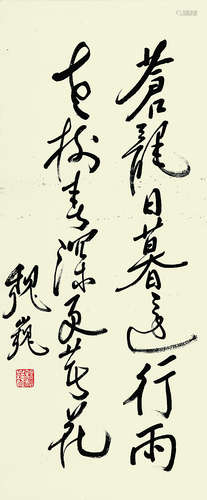 蒼龍日暮還行雨
老樹春深更著花
魏巍